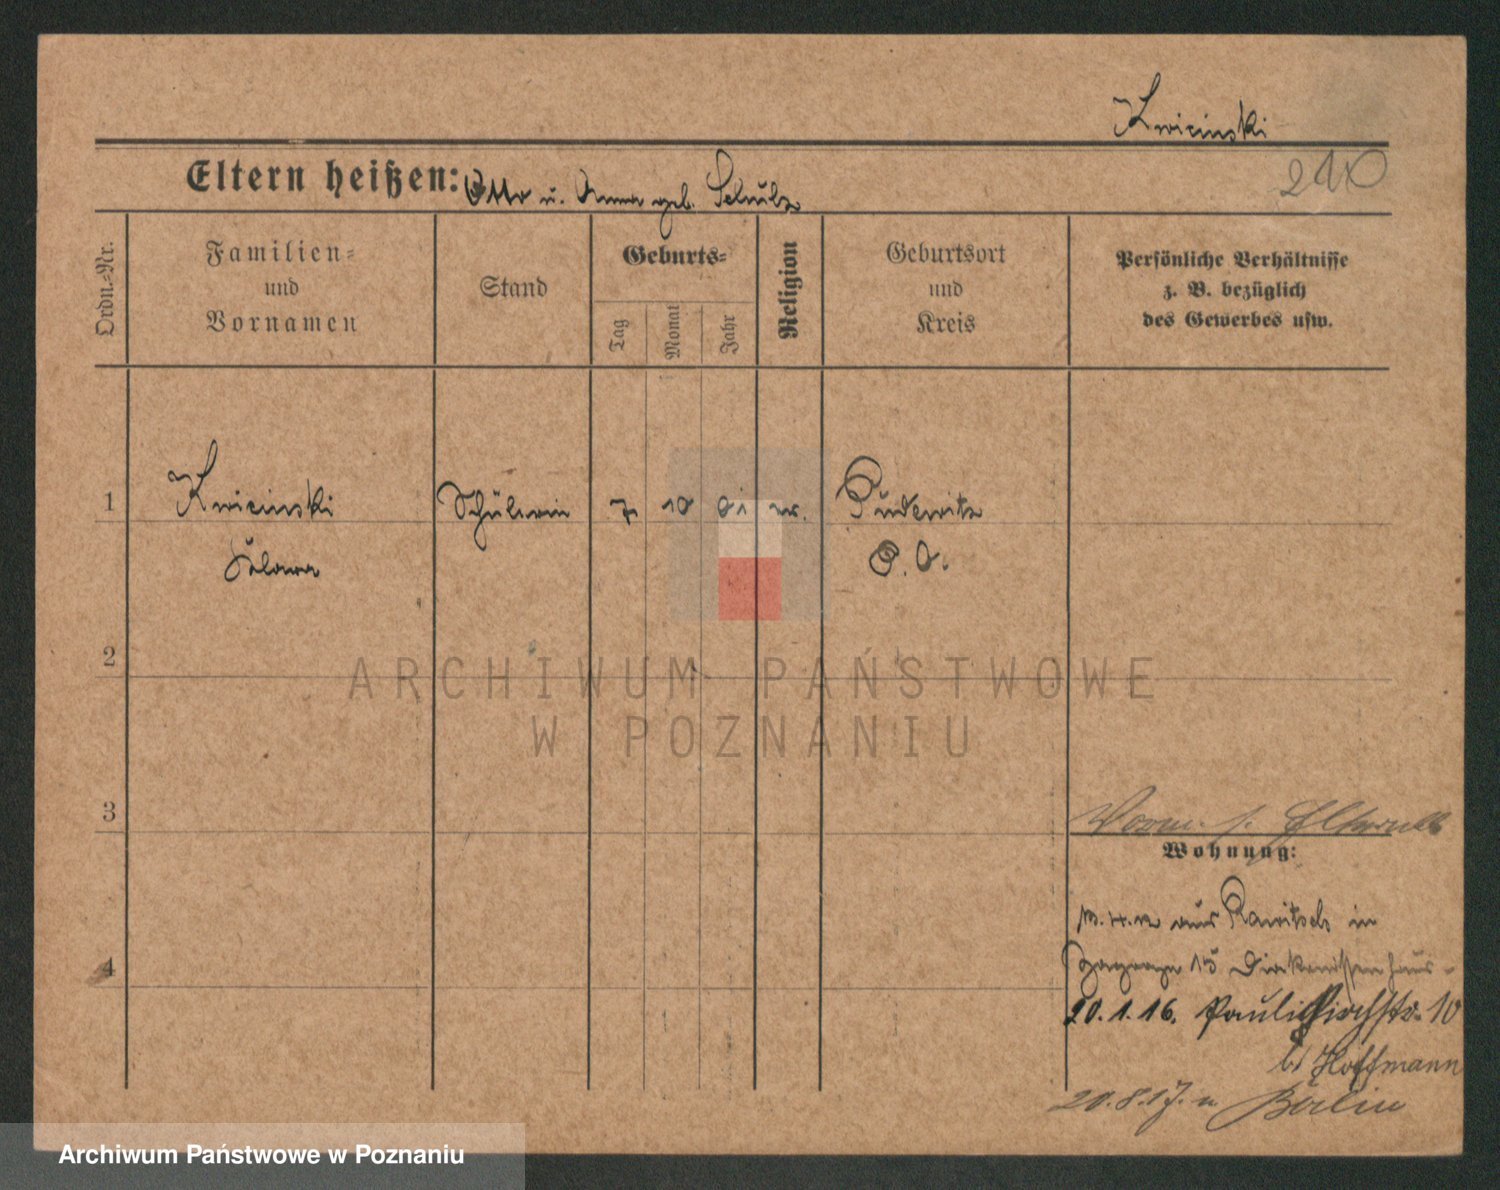 Kwicinski
Eltern heißen: Otto u. Anna geb. Schulz
210
Ordn.-Nr.
Familien-
und
Vornamen
Stand
Geburts-
Tag
Monat
Jahr
Religion
Geburtsort
und
Kreis
Persönliche Verhältnisse
z. B. bezüglich
des Gewerbes usw.
1
Kwicinski
Schülerin
7
10
01
ev.
Pudewitz
P. O.
2
ARCHIWUM PAŃSTWOWE
W POZNANIU
3
Wohnung:
aus Rawitsch in
4
15 Diakonissenhaus-
20.1.16. Paulikirchstr. 10
b/ Hoffmann
20.8.17. n. Berlin
Archiwum Państwowe w Poznaniu